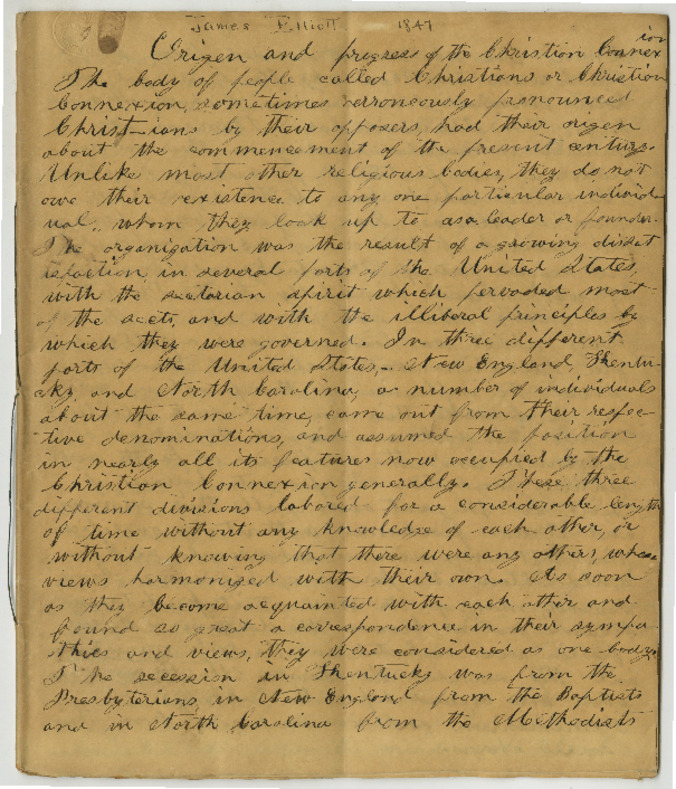 James Elliott 1847
Origen and progress of the Christion Connexion
The body of people called Christians or Christion
Connexion, sometimes erroneously pronounced
Christ-ians by their opposers, had their origen
about the commencement of the present century.
Unlike most other religious bodies, they do not
owe their existence to any one particular individ-
ual, whom they look up to as a leader or founder.
The organization was the result of a growing dissat
isfaction, in several parts of the United States,
with the sectarian spirit which pervaded most
of the sects, and with the illiberal principles by
which they were governed. In three different
parts of the United States,- New England, Kentu-
cky, and North Carolina, a number of individuals
about the same time, came out from their respec-
tive denominations, and assumed the position
in nearly all its features now occupied by the
Christian Connexion generally. These three
different divisions labored for a considerable length
of time without any knowledge of each other, or
without knowing that there were any others, whose
views harmonized with their own. As soon
as they become acquainted with each other and
found so great a correspondence in their sympa
thies and views, they were considered as one body.
The secession in Kentucky was from the
Presbyterians, in New England from the Baptists
and in North Carolina from the Methodists